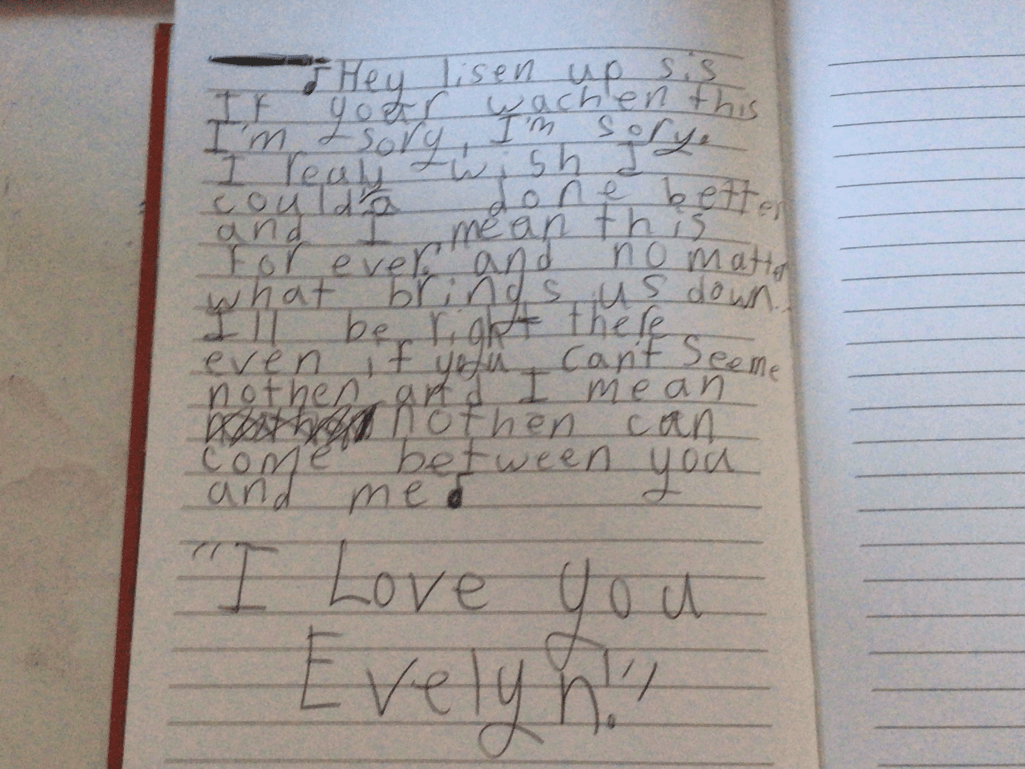 ♪Hey lisen up sis
If your wachen this
I'm sory, I'm sory.
I realy wish I
could'a done better
and I mean this
for ever and no matter
what brings us down.
I'll be right there
even if you can't See me
nothen and I mean
nothen can
come between you
and me♪
"I Love you
Evelyn!"